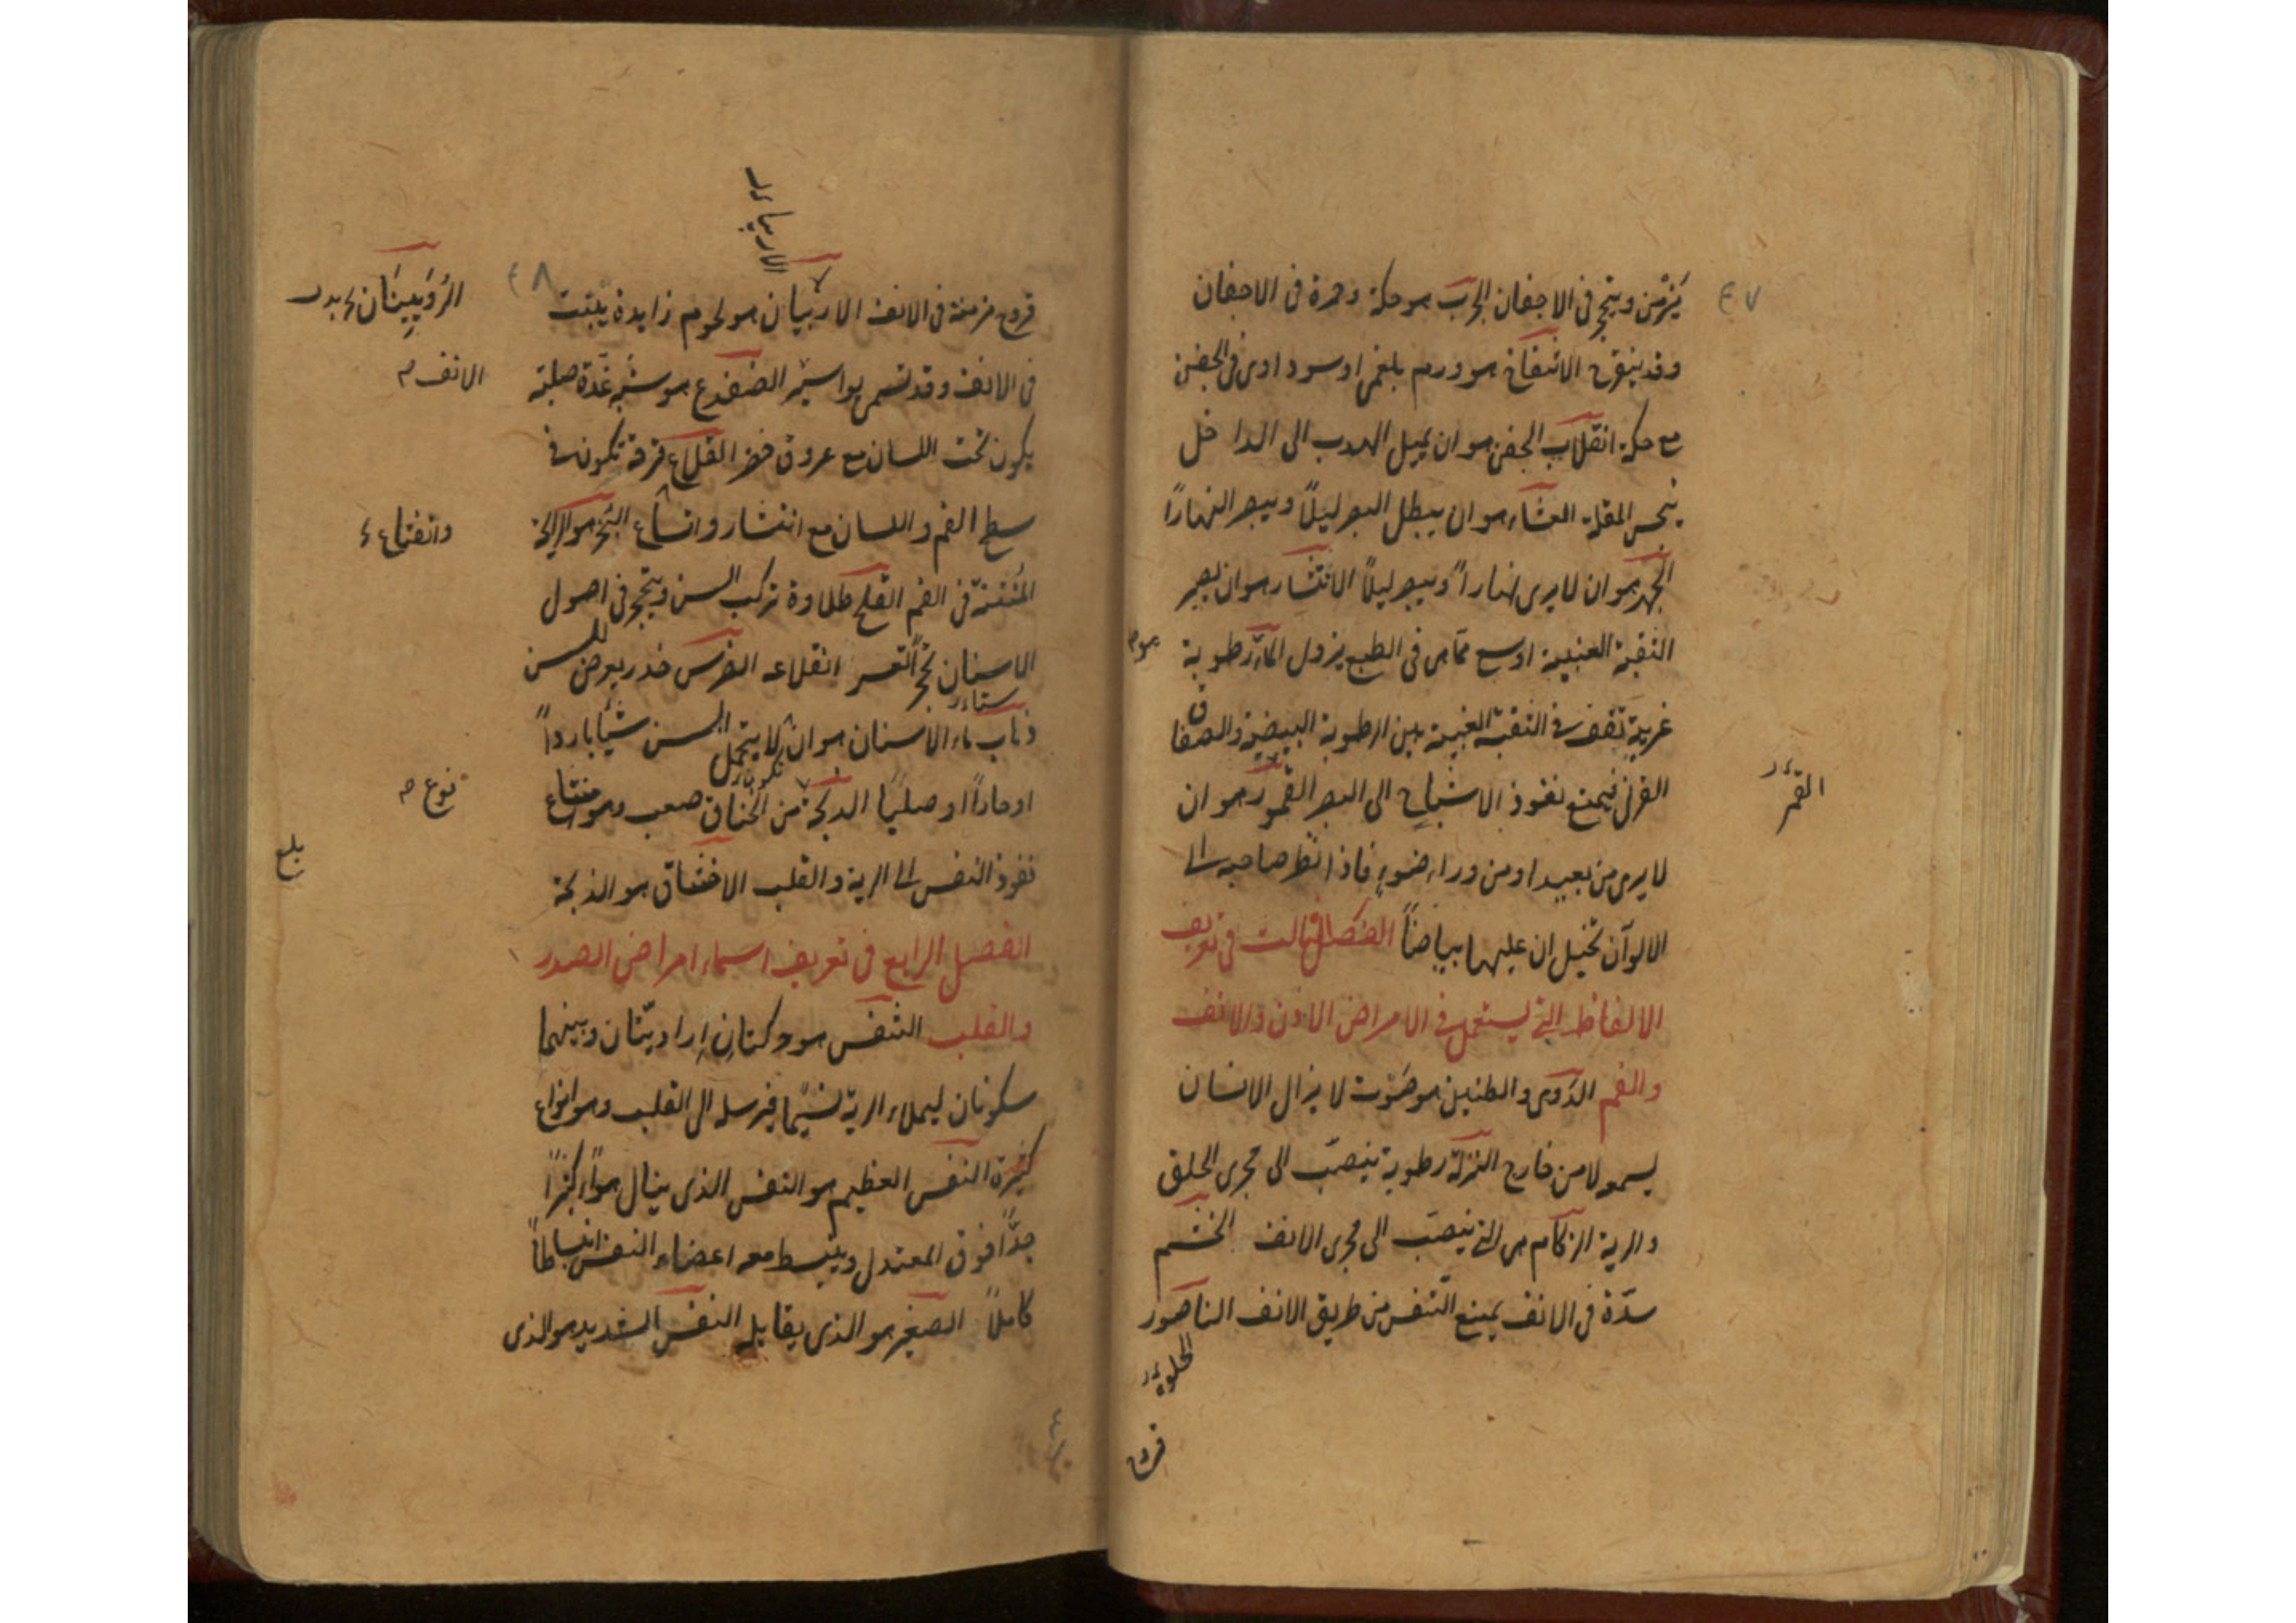 ٤٧
يزمن ويتحجر فى الاجفان الجرب هو حكة وحمرة فى الاجفان
وقد يتقرح الانتفاخ هو ورم بلغمى او سوداوى فى الجفن
مع حكة انقلاب الجفن هو ان يميل الهدب الى الداخل
ينخس المقلة العشاء هو ان يبطل البصر ليلاً ويبصر النهاراً
الجهر هو ان لا يرى نهاراً ويبصر ليلاً الانتشار هو ان يصير
الثقبة العنبية اوسع مما هى فى الطبع نزول الماء رطوبة
هو م
غريبة تقف فى الثقبة العنبية بين الرطوبة البيضية والصفاق
القرنى فيمنع نفوذ الاشباح الى البصر القمور هو ان
القمر
لا يرى من بعيد او من وراء ضوء فاذا نظر صاحبه الى
الالوان تخيل ان عليها بياضاً الفصل الثالث فى تعريف
الالفاظ التى يستعمل فى الامراض الاذن والانف
والفم الدوى والطنين هو صوت لا يزال الانسان
يسمع لا من خارج النزلة رطوبة ينصب الى مجرى الحلق
والرية الزكام هى التى ينصب الى مجرى الانف الخشم
سدة فى الانف يمنع التنفس من طريق الانف الناصور
قروح
٤٨
قروح مزمنة فى الانف الاربيان هو لحوم زايدة ينبت
الانف م
فى الانف وقد تسمى بواسير الضفدع هو شبه غدة صلبة
يكون تحت اللسان مع عروق خضر القلاع قرحة تكون فى
سطح الفم واللسان مع انتشار واتساع البخر هو الرايحة
المنتنة فى الفم القلح طلاوة تركب السن ويتحجر فى اصول
الاسنان تحجراً تعسر انقلاعه الضرس خدر يعرض للسن
ذهاب ماء الاسنان هو ان لا يتحمل السن شيئا بارداً
او حاراً او صلباً الذبحة من الخناق صعب وهو امتناع
نوع م
نفوذ النفس الى الرية والقلب الاختناق هو الذبحة
الفصل الرابع فى تعريف اسماء امراض الصدر
والقلب التنفس هو حركتان اراديتان وبينهما
سكونان ليملاء الرية نسيما فيرسله الى القلب وهو انواع
كثيرة النفس العظيم هو النفس الذى ينال هواء كثيراً
جداً فوق المعتدل وينبسط معه اعضاء النفس انبساطاً
كاملاً الصغير هو الذى يقابله النفس الشديد هو الذى